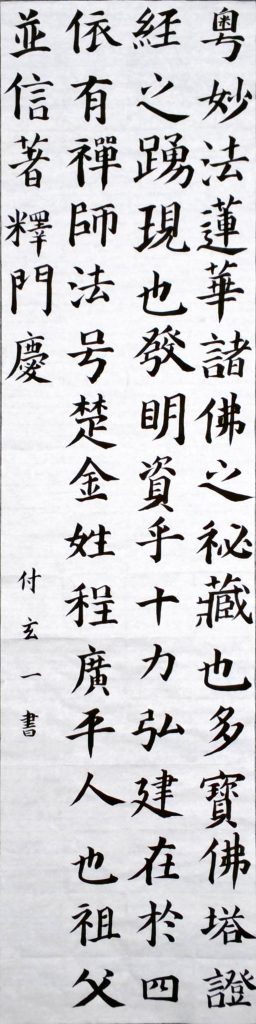 粤妙法蓮華諸佛之祕藏也多寶佛塔證
經之踴現也發明資乎十力弘建在於四
依有禪師法号楚金姓程廣平人也祖父
並信著釋門慶
付玄一書